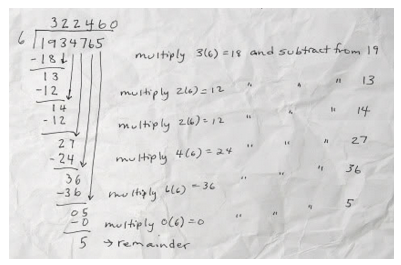 322460
6 1934765
-18 multiply 3(6)=18 and subtract from 19
13
-12 multiply 2(6)=12 " " " 13
14
-12 multiply 2(6)=12 " " " 14
27
-24 multiply 4(6)=24 " " " 27
36
-36 multiply 6(6)=36 " " " 36
05
-0 multiply 0(6)=0 " " " 5
5 → remainder